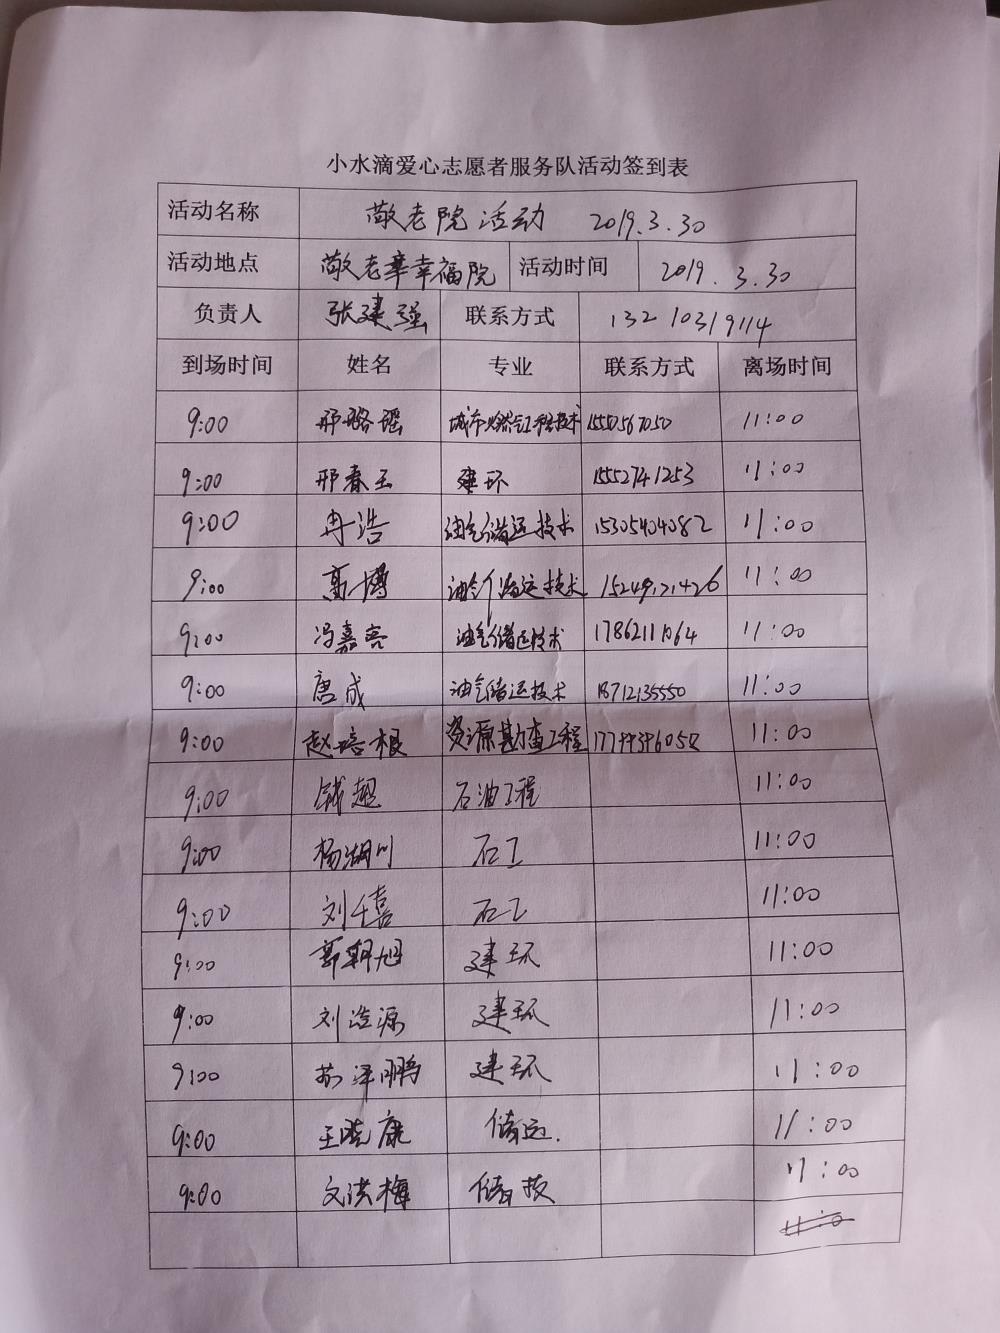 小水滴爱心志愿者服务队活动签到表
活动名称 敬老院活动 2019.3.30
活动地点 敬老辛幸福院 活动时间 2019.3.30
负责人 张建强 联系方式 13210319114
到场时间 姓名 专业 联系方式 离场时间
9:00 邢璐瑶 城市燃气工程技术 1550567050 11:00
9:00 邢春玉 建环 15552741253 11:00
9:00 冉浩 油气储运技术 15305404082 11:00
9:00 高博 油气储运技术 11:00
9:00 冯嘉容 油气储运技术 17862111064 11:00
9:00 唐成 油气储运技术 18712135550 11:00
9:00 赵培根 资源勘查工程 11:00
9:00 钱超 石油工程 11:00
9:00 杨湖川 石工 11:00
9:00 刘千禧 石工 11:00
9:00 郭朝旭 建环 11:00
9:00 刘浩源 建环 11:00
9:00 苏泽鹏 建环 11:00
9:00 王晓康 储运. 11:00
9:00 文洪梅 储技 11:00